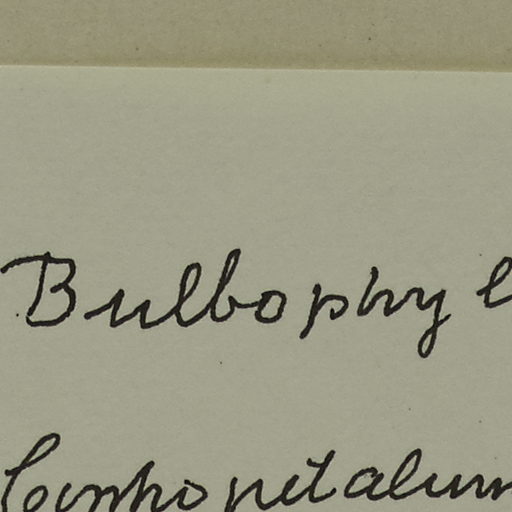 Bulbophyl
Cirrhopetalum